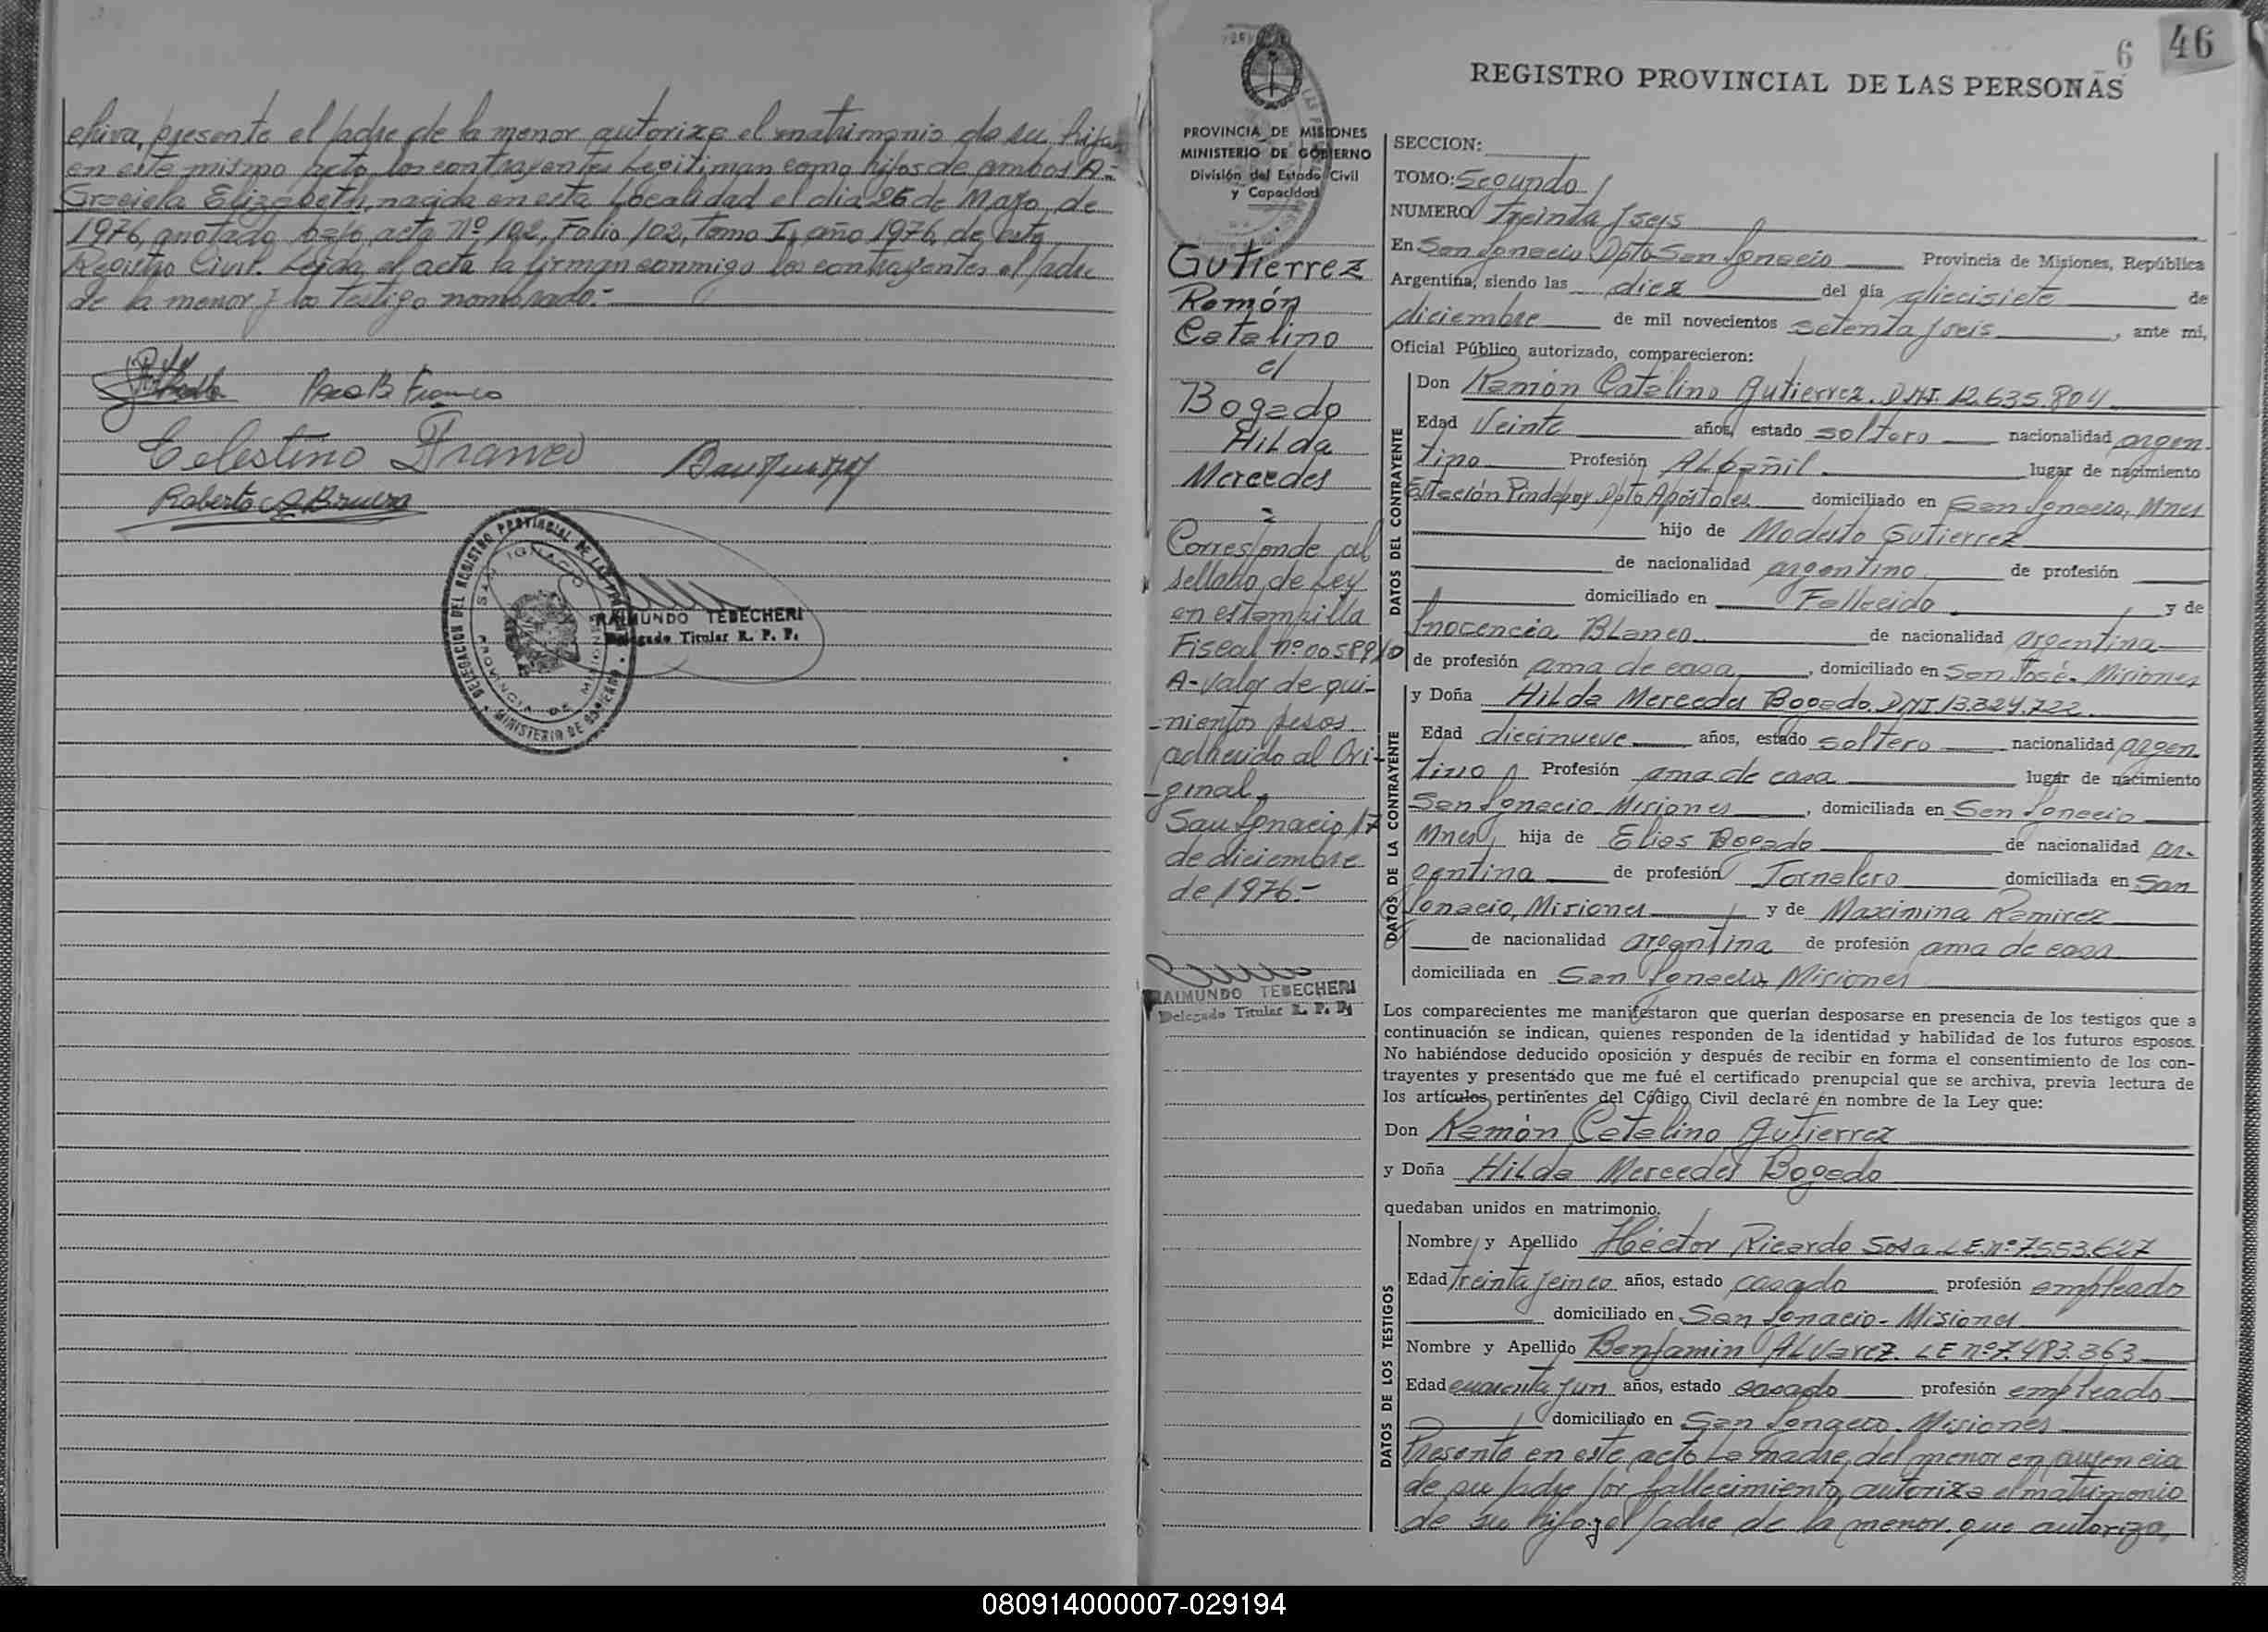 chiva, presente el padre de la menor autoriza el matrimonio de su hija
en este mismo acto los contrayentes Legitiman como hijos de ambos A-
Graciela Elizabeth, nacida en esta Localidad el dia 26 de Mayo de
1976, anotado bajo acta Nº 102, Folio 102, Tomo I, año 1976, de esta
Registro Civil. Leida el acta la firman conmigo los contrayentes el padre
de la menor y los Testigo nombrado.-
Franco
Celestino Franco
Roberto
DELEGACION DEL REGISTRO PROVINCIAL DE LAS PERSONAS
SAN IGNACIO
PROVINCIA DE MISIONES
MINISTERIO DE GOBIERNO
RAIMUNDO TEBECHERI
Delegado Titular R. P. P.
6
46
REGISTRO PROVINCIAL DE LAS PERSONAS
PROVINCIA DE MISIONES
MINISTERIO DE GOBIERNO
División del Estado Civil
y Capacidad
Gutierrez
Ramón
Catalino
c/
Bogado
Hilda
Mercedes
Corresponde al
sellado de Ley
en estampilla
Fiscal nº 0058910
A- Valor de qui-
-nientos pesos
adherido al Ori-
-ginal.
San Ignacio 17
de diciembre
de 1976.-
RAIMUNDO TEBECHERI
Delegado Titular R. P. P.
SECCION:
TOMO: Segundo
NUMERO Treinta y seis
En San Ignacio Dpto San Ignacio Provincia de Misiones, República
Argentina, siendo las diez del día diecisiete de
diciembre de mil novecientos setenta y seis, ante mi,
Oficial Público autorizado, comparecieron:
DATOS DEL CONTRAYENTE
Don Ramón Catalino Gutierrez. DNI. 12.635.804
Edad Veinte años, estado soltero nacionalidad argen-
tino Profesión Albañil lugar de nacimiento
Estación Pindapoy Dpto Apóstoles domiciliado en San Ignacio, Mnes
hijo de Modesto Gutierrez
de nacionalidad argentino de profesión
domiciliado en Fallecido y de
Inocencia Blanco de nacionalidad argentina
de profesión ama de casa, domiciliado en San José. Misiones
DATOS DE LA CONTRAYENTE
y Doña Hilda Mercedes Bogado. DNI. 13.324.722
Edad diecinueve años, estado soltero nacionalidad argen-
tino Profesión ama de casa lugar de nacimiento
San Ignacio Misiones, domiciliada en San Ignacio
Mnes hija de Elias Bogado de nacionalidad ar-
gentina de profesión Jornalero domiciliada en San
Ignacio, Misiones y de Maximina Ramirez
de nacionalidad argentina de profesión ama de casa
domiciliada en San Ignacio, Misiones
Los comparecientes me manifestaron que querían desposarse en presencia de los testigos que a
continuación se indican, quienes responden de la identidad y habilidad de los futuros esposos.
No habiéndose deducido oposición y después de recibir en forma el consentimiento de los con-
trayentes y presentado que me fué el certificado prenupcial que se archiva, previa lectura de
los artículos pertinentes del Código Civil declaré en nombre de la Ley que:
Don Ramón Catalino Gutierrez
y Doña Hilda Mercedes Bogado
quedaban unidos en matrimonio.
DATOS DE LOS TESTIGOS
Nombre y Apellido Héctor Ricardo Sosa L E. nº 7553.627
Edad treinta y cinco años, estado casado profesión empleado
domiciliado en San Ignacio - Misiones
Nombre y Apellido Benjamin Alvarez. L E nº 7.483.363
Edad cuarenta y un años, estado casado profesión empleado
domiciliado en San Ignacio. Misiones
Presente en este acto la madre del menor en ausencia
de su padre por fallecimiento, autoriza el matrimonio
de su hijo y el padre de la menor que autoriza,
080914000007-029194